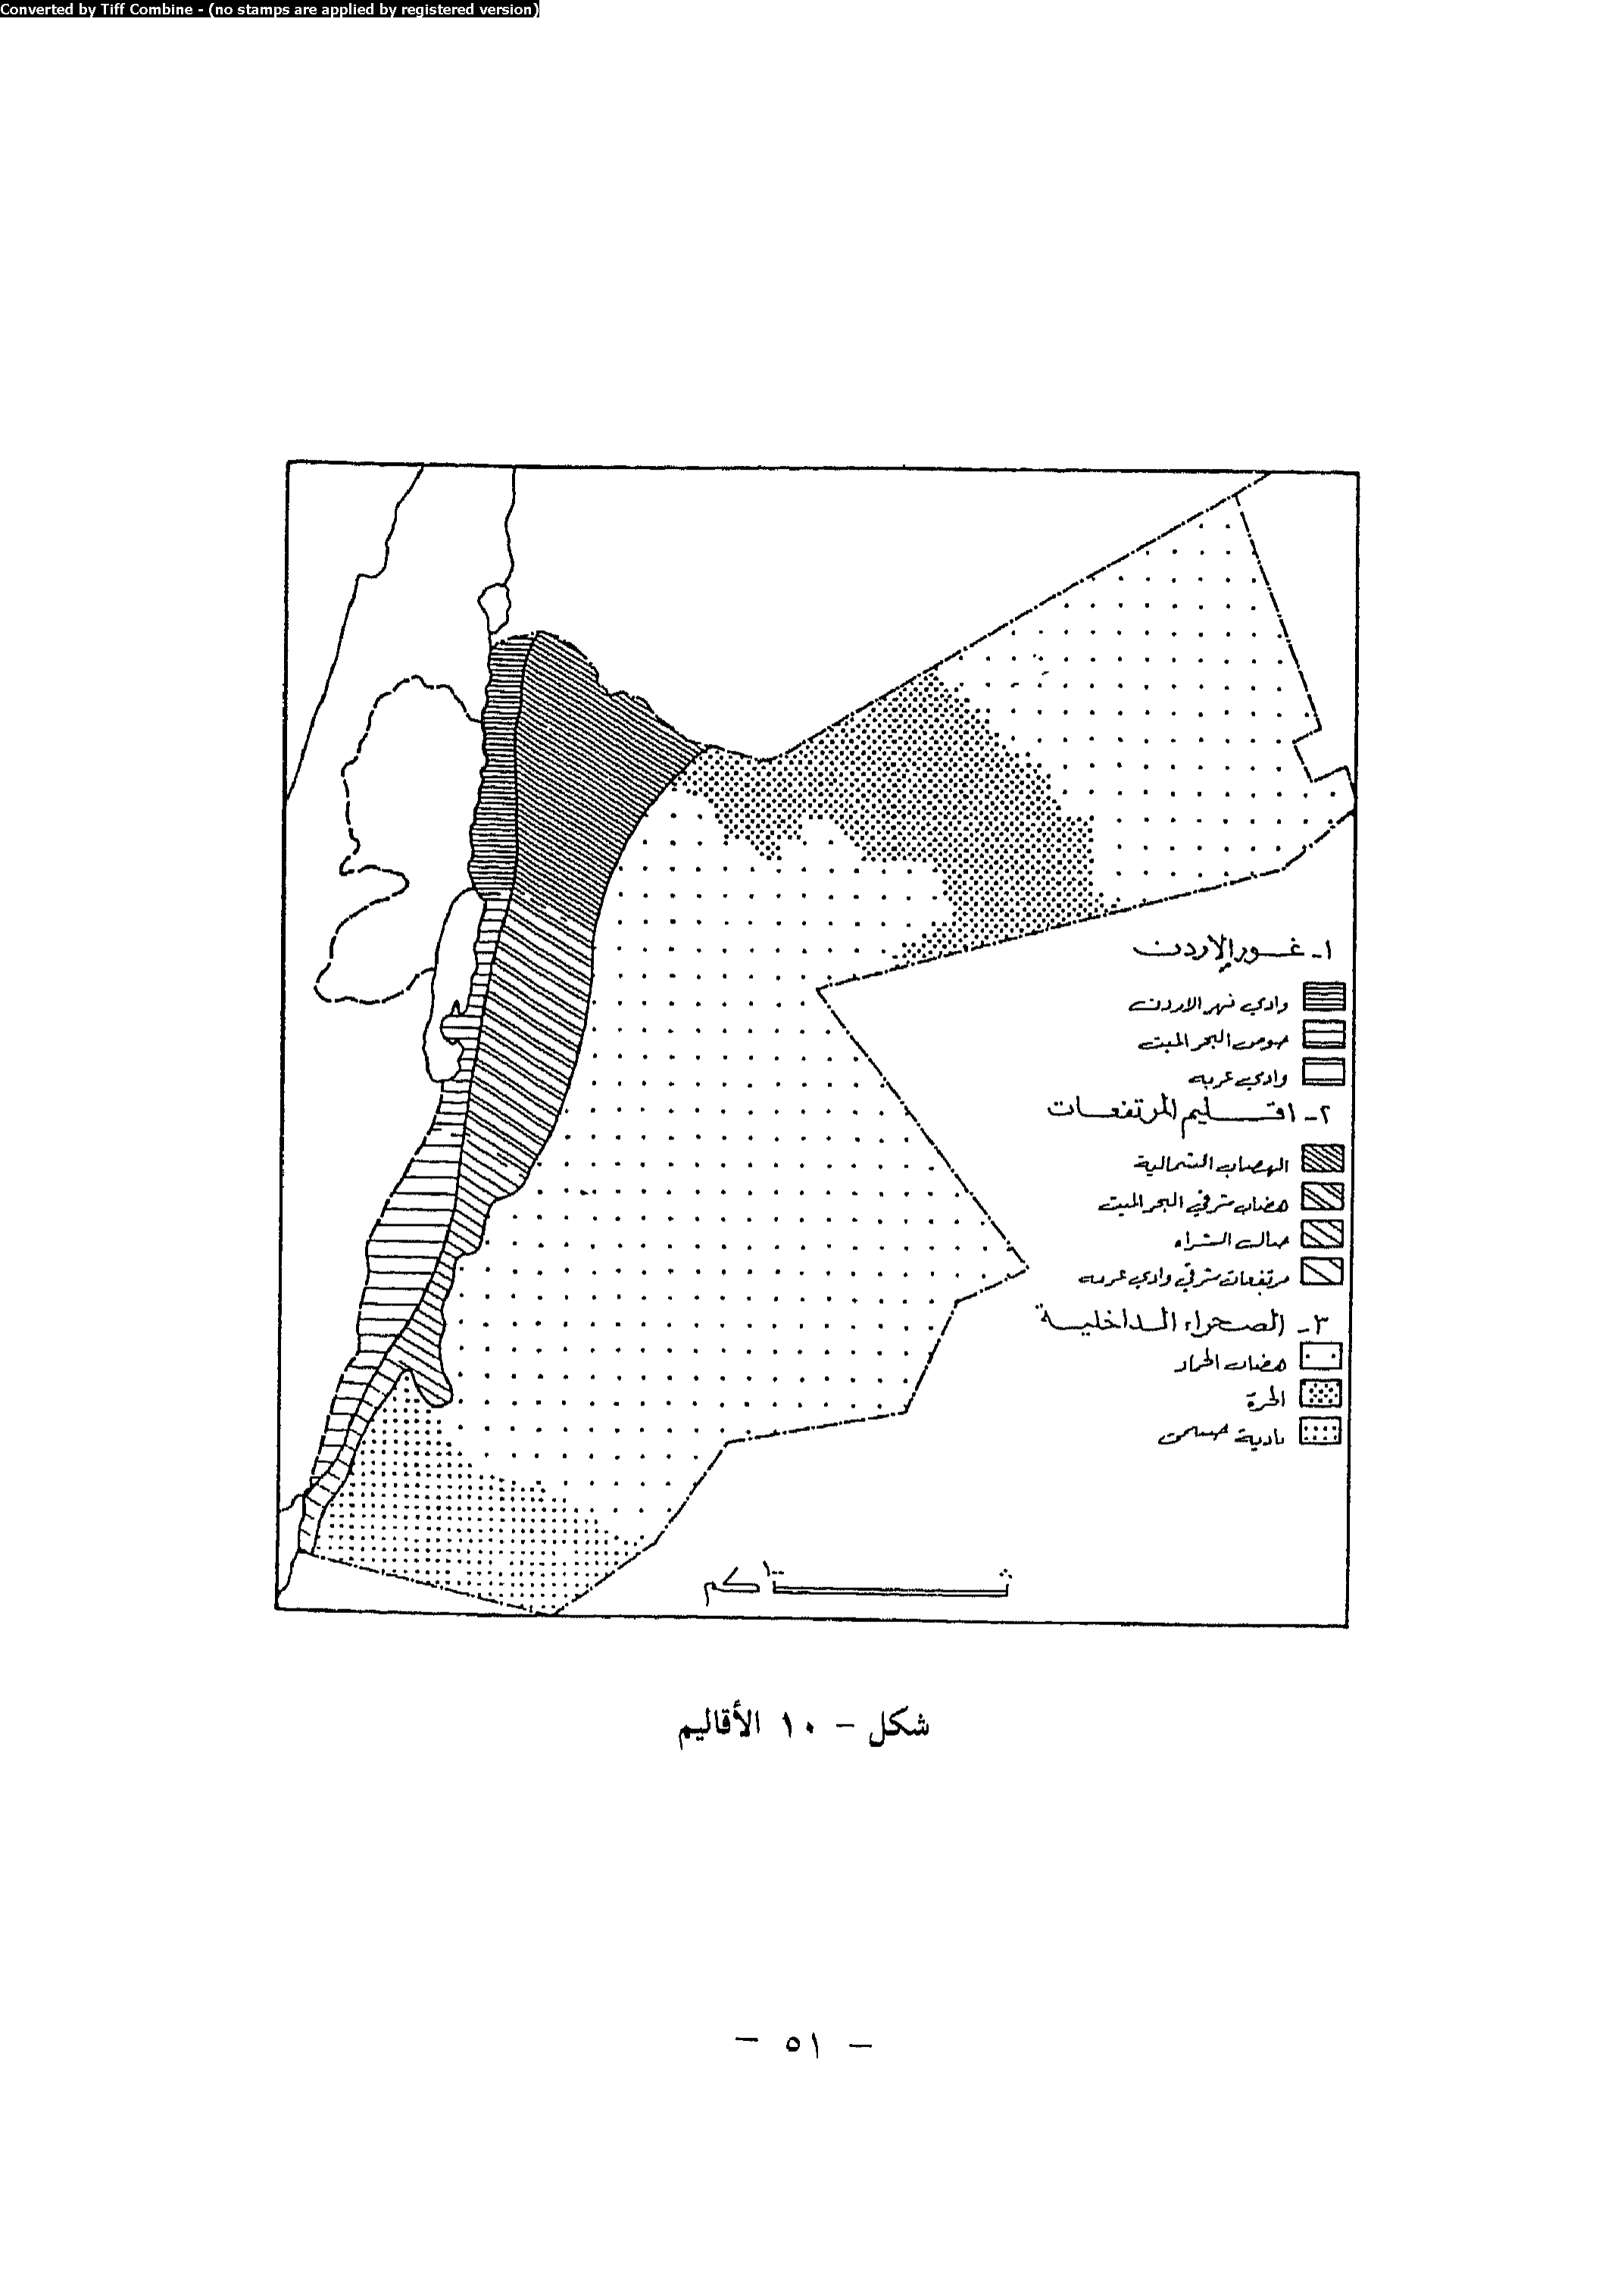 Converted by Tiff Combine - (no stamps are applied by registered version)
١- غـور الاردن
وادي نهر الاردن
حوض البحر الميت
وادي عربه
٢- اقـليم المرتفعـات
الهضاب الشمالية
هضاب شرقي البحر الميت
جبال الشراه
مرتفعات شرقي وادي عربه
٣- الصحراء الـداخليـة
هضاب الحماد
الحرة
بادية حسمى
٠ ١٠٠ كم
شكل - ١٠ الأقاليم
- ٥١ -